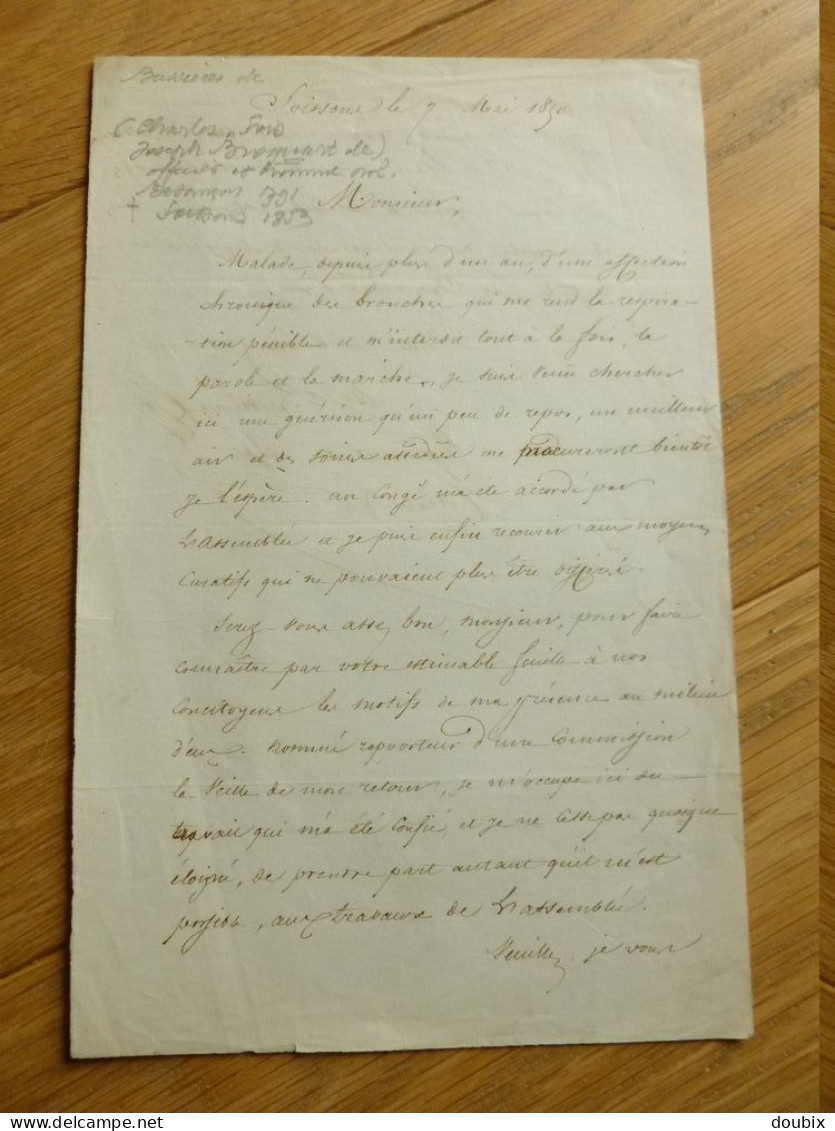 Bussières de
Soissons le 7 Mai 1850
(Charles, Fois
Joseph Brocquart de)
officier et homme pol.
Besançon 1791
+ Soissons 1853
Monsieur,
Malade, depuis plus d'un an, d'une affection
chronique des bronches qui me rend la respira-
-tion pénible et m'interdit tout à la fois, la
parole et la marche, je suis venu chercher
ici une guérison qu'un peu de repos, un meilleur
air et des soins assidus me procureront bientôt
je l'espère. un congé m'a été accordé par
L'assemblée et je puis enfin recourir aux moyens
curatifs qui ne pouvaient plus être différés.
Serez vous assez bon, monsieur, pour faire
connaître par votre estimable feuille à nos
concitoyens les motifs de ma présence au milieu
d'eux. Nommé rapporteur d'une Commission
la veille de mon retour, je m'occupe ici du
travail qui m'a été confié, et je ne cesse pas quoique
éloigné, de prendre part autant qu'il m'est
possible, aux travaux de L'assemblée.
Veuillez, je vous
doubix